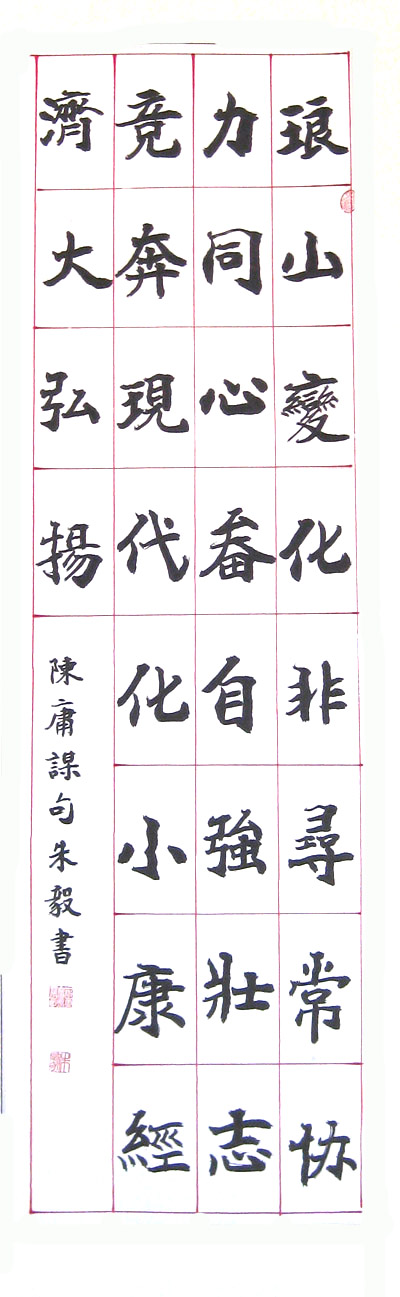 琅山變化非尋常协
力同心畚自強壯志
竞奔現代化小康經
濟大弘揚
陳庸謀句朱毅書